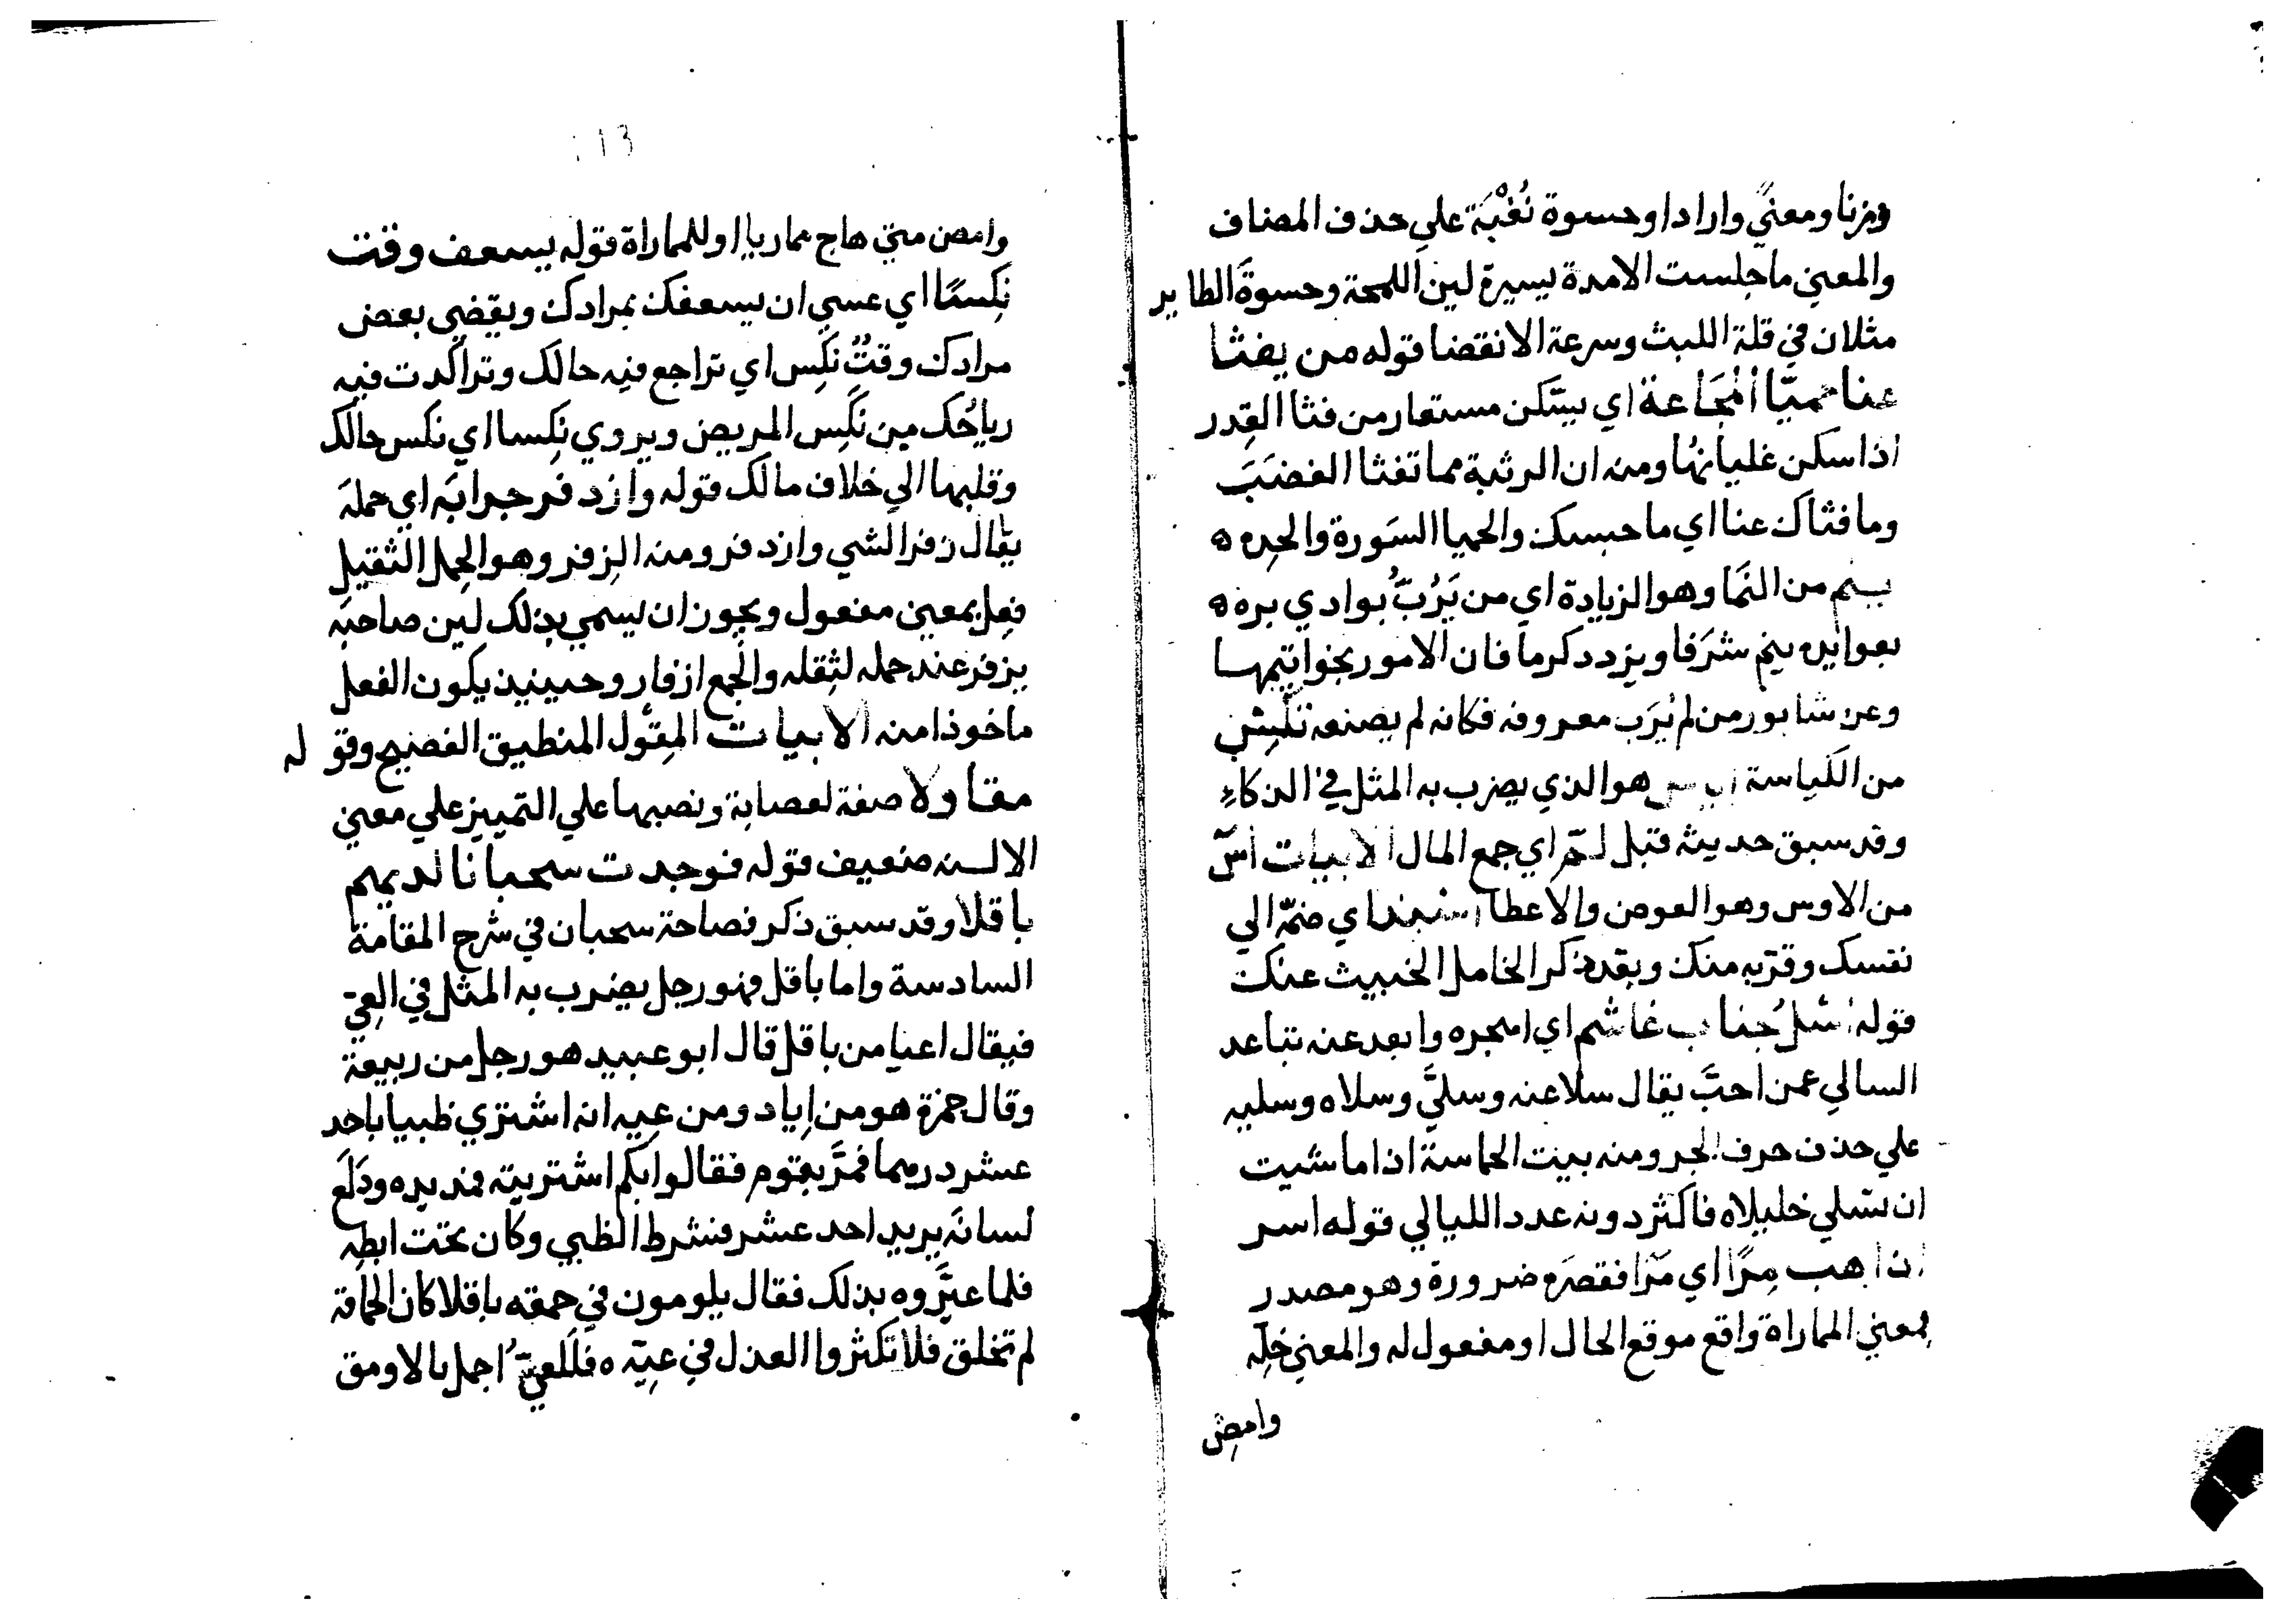 وزنا ومعنًي واراد او حسوة نُغْبَة علي حذف المضاف
والمعني ما جلست الا مدة يسيرة لين اللمحة وحسوةَ الطاير
مثلان في قلة اللبث وسرعة الانقضا قوله من يفثا
عنا حميّا المَجَاعة اي يسّكن مستعار من فثا القِدر
اذا سكن غليانها ومنه ان الرثية مما تفثا الغضَبَ
وما فثاك عنا اي ما حبسك والحميا السَورة والحده ه
ينم من النَما وهو الزيادة اي من يَرُبّ بوادي بره ه
بعوايده ينم شرَفا ويزدد كرما فان الامور بخواتيمها
وعن شابور من لم يُرَب معروفه فكانه لم يصنعه
من الكياسة هو الذي يضرب به المثل في الذكاءِ
وقد سبق حديثه قبل لمّ اي جمع المال الابيات اُسْ
من الاوس وهو العوض والاعطا اي ضمّه الي
نفسك وقرّبه منك الخامل الخبيث عنك
قوله جناب غاشم اي اهجره وابعد عنه تباعد
السالي عمن احبَّ يقال سلا عنه وسليَّ وسلاه وسليه
علي حذف حرف الجر ومنه بيت الحماسة اذا ما شيت
ان تسلي خليلا ه فاكثر دونه عدد الليالي قوله اسر
اذا هب مِرًا اي مَرّا فقصَره ضرورة وهو مصدر
بمعني المماراة واقع موقع الحال او مفعول له والمعني خلِّه
وامض
113
وامض متي هاج مماريا او للمماراة قوله يسعف وقت
نَكِسًا اي عسي ان يسعفك بمرادك ويقضي بعض
مرادك وقتٌ نَكِس اي تراجع فيه حالك وتراكدت فيه
رياحُك من نَكِس المريض ويروي نَكِسا اي نكس حالك
وقلبها الي خلاف مالك قوله وازدفر جرابَه اي حملهَ
يقال زفر الشي وازدفر ومنه الزِفر وهو الحِمل الثقيل
فِعل بمعني مفعول ويجوز ان يسمي بذلك لين صاحبَه
يزفر عند حمله لثِقله والجمع ازفار وحينيذ يكون الفعل
ماخوذا منه الابيات المِقْوَل المنطيق الفصيح وقو له
مقاولا صفة لعصابة ونصبها علي التمييز علي معني
الالسنه ضعيف قوله فوجدت سحبانا لديهم
باقلا وقد سبق ذكر فصاحة سحبان في شرح المقامة
السادسة واما باقل فهو رجل يضرب به المثل في العِيّ
فيقال اعيا من باقل قال ابو عبيد هو رجل من ربيعة
وقال حمزة هو من اِياد ومن عيه انه اشتري ظبيا باحد
عشر درهما فمَرَّ بقوم فقالوا بكم اشتريته فمد يده ودَلَعَ
لسانَه يريد احد عشر فشرط الظبي وكان تحت ابطه
فلما عيَّروه بذلك فقال يلومون في حمقه باقلا كان الحماقة
لم تخلق فلا تكثروا العذل في عيّه ه فللعيّ اجمل بالاومق